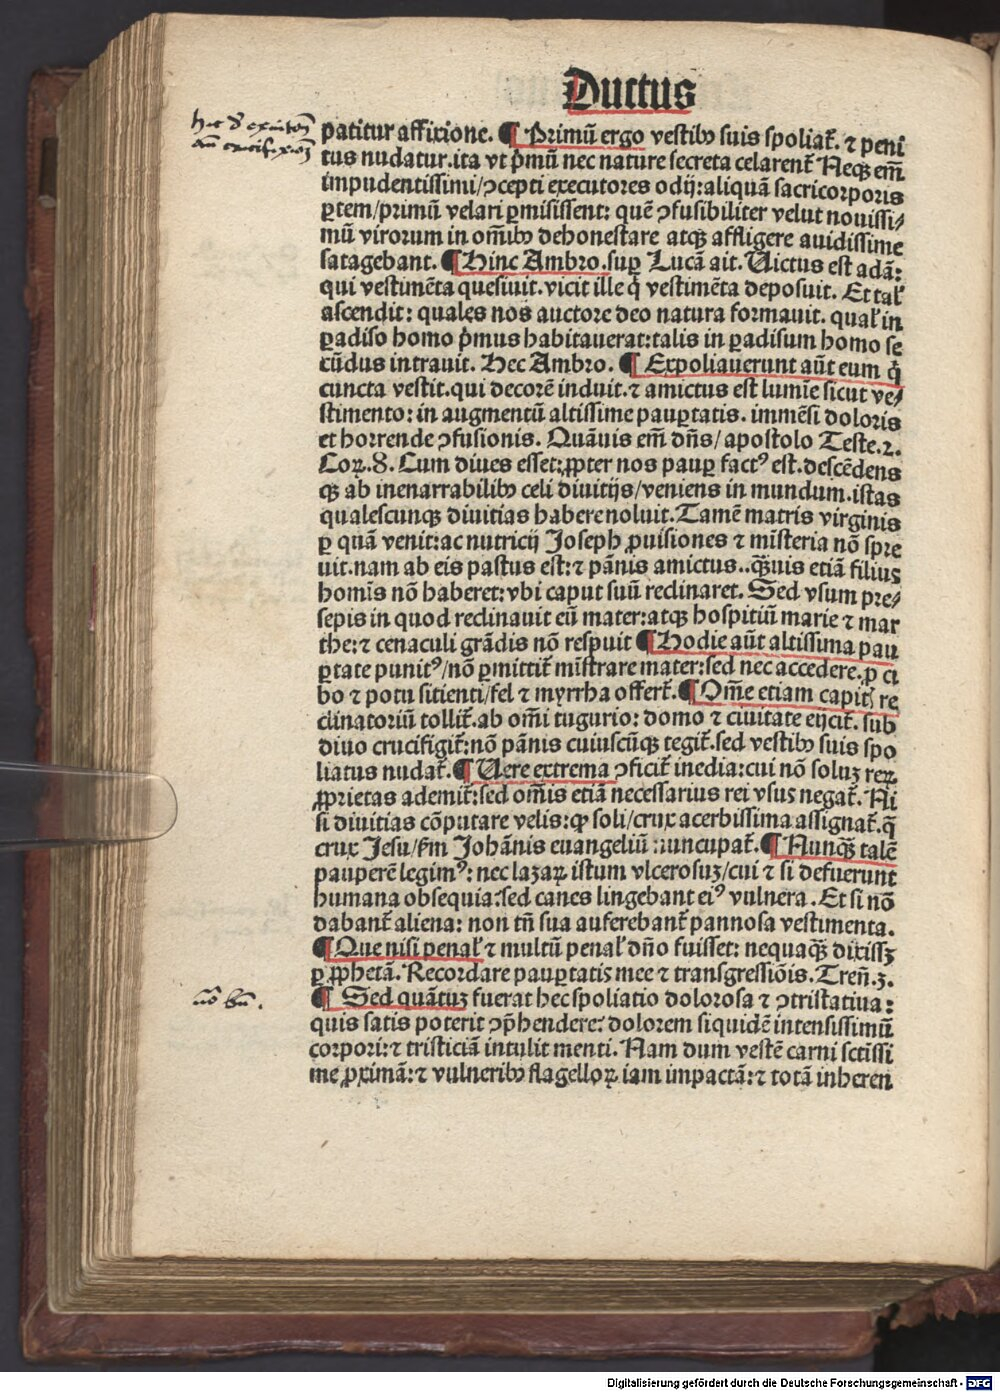 Ductus
patitur affixione. ¶ Primū ergo vestibꝰ suis spoliat̄. ⁊ peni
tus nudatur.ita vt p̄mū nec nature secreta celarent̄ Neqꝫ em̄
impudentissimi/ↄcepti executores odij:aliquā sacri corporis
ꝑtem/primū velari ꝑmisissent: quē ↄfusibiliter velut nouissi⸗
mū virorum in om̄ibꝰ dehonestare atqꝫ affligere auidissime
satagebant. ¶ Hinc Ambro.suꝑ Lucā ait. Uictus est adā:
qui vestimēta quesiuit.vicit ille q̄ vestimēta deposuit. Et tal̄
ascendit: quales nos auctore deo natura formauit. qual̄ in
ꝑadiso homo p̄mus habitauerat:talis in ꝑadisum homo se
cūdus intrauit. Hec Ambro. ¶ Expoliauerunt aūt eum q̄
cuncta vestit.qui decorē induit.⁊ amictus est lumīe sicut ve⸗
stimento: in augmentū altissime pauꝑtatis. immēsi doloris
et horrende ↄfusionis. Quāuis em̄ dn̄s/apostolo Teste.2.
Coꝝ.8. Cum diues esset:ꝓpter nos pauꝑ factꝰ est.descēdens
qꝫ ab inenarrabilibꝰ celi diuitijs/veniens in mundum.istas
qualescunqꝫ diuitias habere noluit.Tamē matris virginis
ꝑ quā venit:ac nutricij Joseph ꝓuisiones ⁊ mīsteria nō spre
uit.nam ab eis pastus est:⁊ pānis amictus..qꝫuis etiā filius
homīs nō haberet:vbi caput suū reclinaret. Sed vsum pre⸗
sepis in quod reclinauit eū mater:atqꝫ hospitiū marie ⁊ mar
the:⁊ cenaculi grādis nō respuit ¶ Hodie aūt altissima pau
ꝑtate punitꝰ/nō ꝑmittit̄ mīstrare mater:sed nec accedere.ꝓ ci
bo ⁊ potu sitienti/fel ⁊ myrrha offert̄.¶ Om̄e etiam capitꝭ re
clinatoriū tollit̄.ab om̄i tugurio: domo ⁊ ciuitate eijcit̄. sub
diuo crucifigit̄:nō pānis cuiuscūqꝫ tegit̄.sed vestibꝰ suis spo
liatus nudat̄.¶ Uere extrema ↄficit̄ inedia:cui nō soluꝫ reꝝ
ꝓprietas ademit̄:sed om̄is etiā necessarius rei vsus negat̄. Ni
si diuitias cōputare velis:qꝙ soli/crux acerbissima assignat̄.q̄
crux Jesu/ẜm Johānis euangeliū nuncupat̄.¶ Nunqꝫ talē
pauperē legimꝰ: nec lazaꝝ istum vlcerosuꝫ/cui ⁊ si defuerunt
humana obsequia:sed canes lingebant eiꝰ vulnera. Et si nō
dabant̄ aliena: non tn̄ sua auferebant̄ pannosa vestimenta.
¶ Que nisi penal̄ ⁊ multū penal̄ dn̄o fuisset: nequaqꝫ dixissꝫ
ꝑ ꝓphetā. Recordare pauꝑtatis mee ⁊ transgressiōis. Tren̄.3.
¶ Sed quātuꝫ fuerat hec spoliatio dolorosa ⁊ ↄtristatiua:
quis satis poterit ↄp̄hendere: dolorem siquidē intensissimū
corpori:⁊ tristiciā intulit menti. Nam dum vestē carni sctissi
me ꝓximā:⁊ vulneribꝰ flagelloꝝ iam impactā:⁊ totā inheren
Digitalisierung gefördert durch die Deutsche Forschungsgemeinschaft - DFG